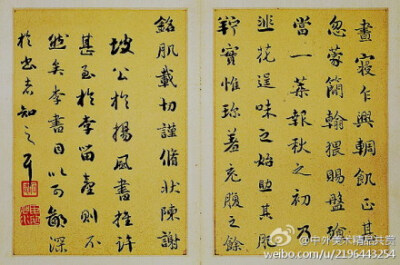 晝寢乍興輖飢正甚
忽蒙簡翰猥賜盤飧
當一葉報秋之初乃
韭花逞味之始助其肥
羜實惟珍羞充腹之餘
銘肌載切謹脩狀陳謝
坡公於楊風書推許
甚至於李留臺則不
然矣李書自以有
深
於書者知之耳
@中外美术精品共赏
weibo.com/u/2196443254